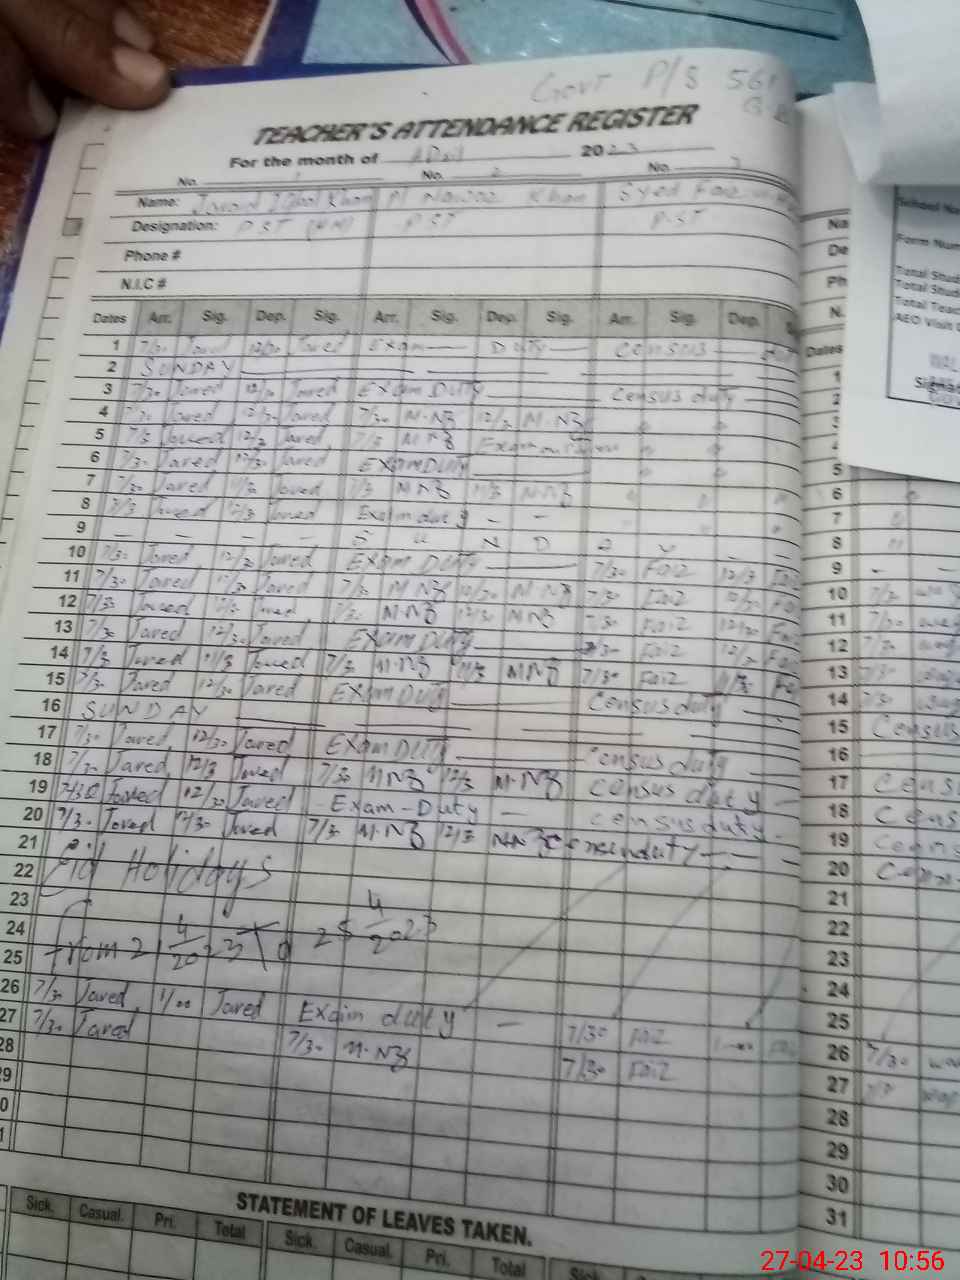 Govt P/S 561
TEACHER'S ATTENDANCE REGISTER
For the month of April 2023
No. 1 No. 2 No. 3
Name: Javaid Iqbal Khan M Nawaz Khan Syed Faiz
Designation: PST (HM) PST PST
Phone #
N.I.C #
Dates Arr. Sig. Dep. Sig. Arr. Sig. Dep. Sig. Arr. Sig. Dep.
1 7/30 Javed 12/30 Javed Exam Duty Census
2 SUNDAY
3 7/30 Javed 12/30 Javed Exam Duty Census duty
4 7/30 Javed 12/30 Javed 7/30 M.NZ 12/3 M.NZ "
5 7/3 Javed 12/3 Javed 7/3 M NZ Exam " "
6 7/30 Javed 12/30 Javed Exam Duty " "
7 7/30 Javed 11/30 Javed 7/3 M NZ 11/3 M.NZ " " "
8 7/30 Javed 12/3 Javed Exam duty - -
9 - - - - S U N D A Y - -
10 7/30 Javed 12/30 Javed Exam DUTY 7/30 Faiz 12/3 Faiz
11 7/30 Javed 12/30 Javed 7/30 M NZ 12/30 M NZ 7/30 Faiz 12/30 Fai
12 7/30 Javed 12/3 Javed 7/30 M.NZ 12/30 M NZ 7/30 Faiz 12/30 Fai
13 7/30 Javed 12/30 Javed Exam Duty 7/30 Faiz 12/3 Fai
14 7/3 Javed 11/3 Javed 7/3 M.NZ 11/3 M NZ 7/30 Faiz 11/30 Fa
15 7/30 Javed 12/30 Javed Exam DUTY Census duty
16 SUNDAY
17 7/30 Javed 12/30 Javed Exam DUTY Census duty
18 7/30 Javed 12/3 Javed 7/30 M NZ 12/3 M.NZ Census duty
19 7/30 Javed 12/30 Javed Exam-Duty - Census duty
20 7/30 Javed 12/30 Javed 7/3 M.NZ 12/3 M.NZ
21
22 Eid Holidays
23
24 from 21 4/2023 To 25 4/2023
25
26 7/30 Javed 1/00 Javed Exam duty - 7/30 Faiz
27 7/30 Javed 7/30 M.NZ 7/30 Faiz
28
29
STATEMENT OF LEAVES TAKEN.
Sick. Casual. Pri. Total Sick. Casual. Pri. Total Sick
Na
De
Ph
N.
Dates
1
2
5
6
7
8
9 - -
10 7/3
11 7/30
12 7/30
13 7/30
14 7/30
15 Census
16
17 Cens
18 Cens
19 Cens
20
21
22
23
24
25
26 7/30
27
28
29
30
31
School Na
Form Num
Total Stud
Total Stud
Total Teac
AEO Visit D
27-04-23 10:56